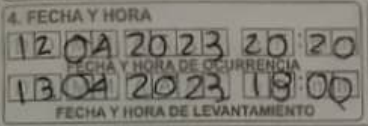 4. FECHA Y HORA
12 04 2023 20:20
FECHA Y HORA DE OCURRENCIA
13 04 2023 18:00
FECHA Y HORA DE LEVANTAMIENTO